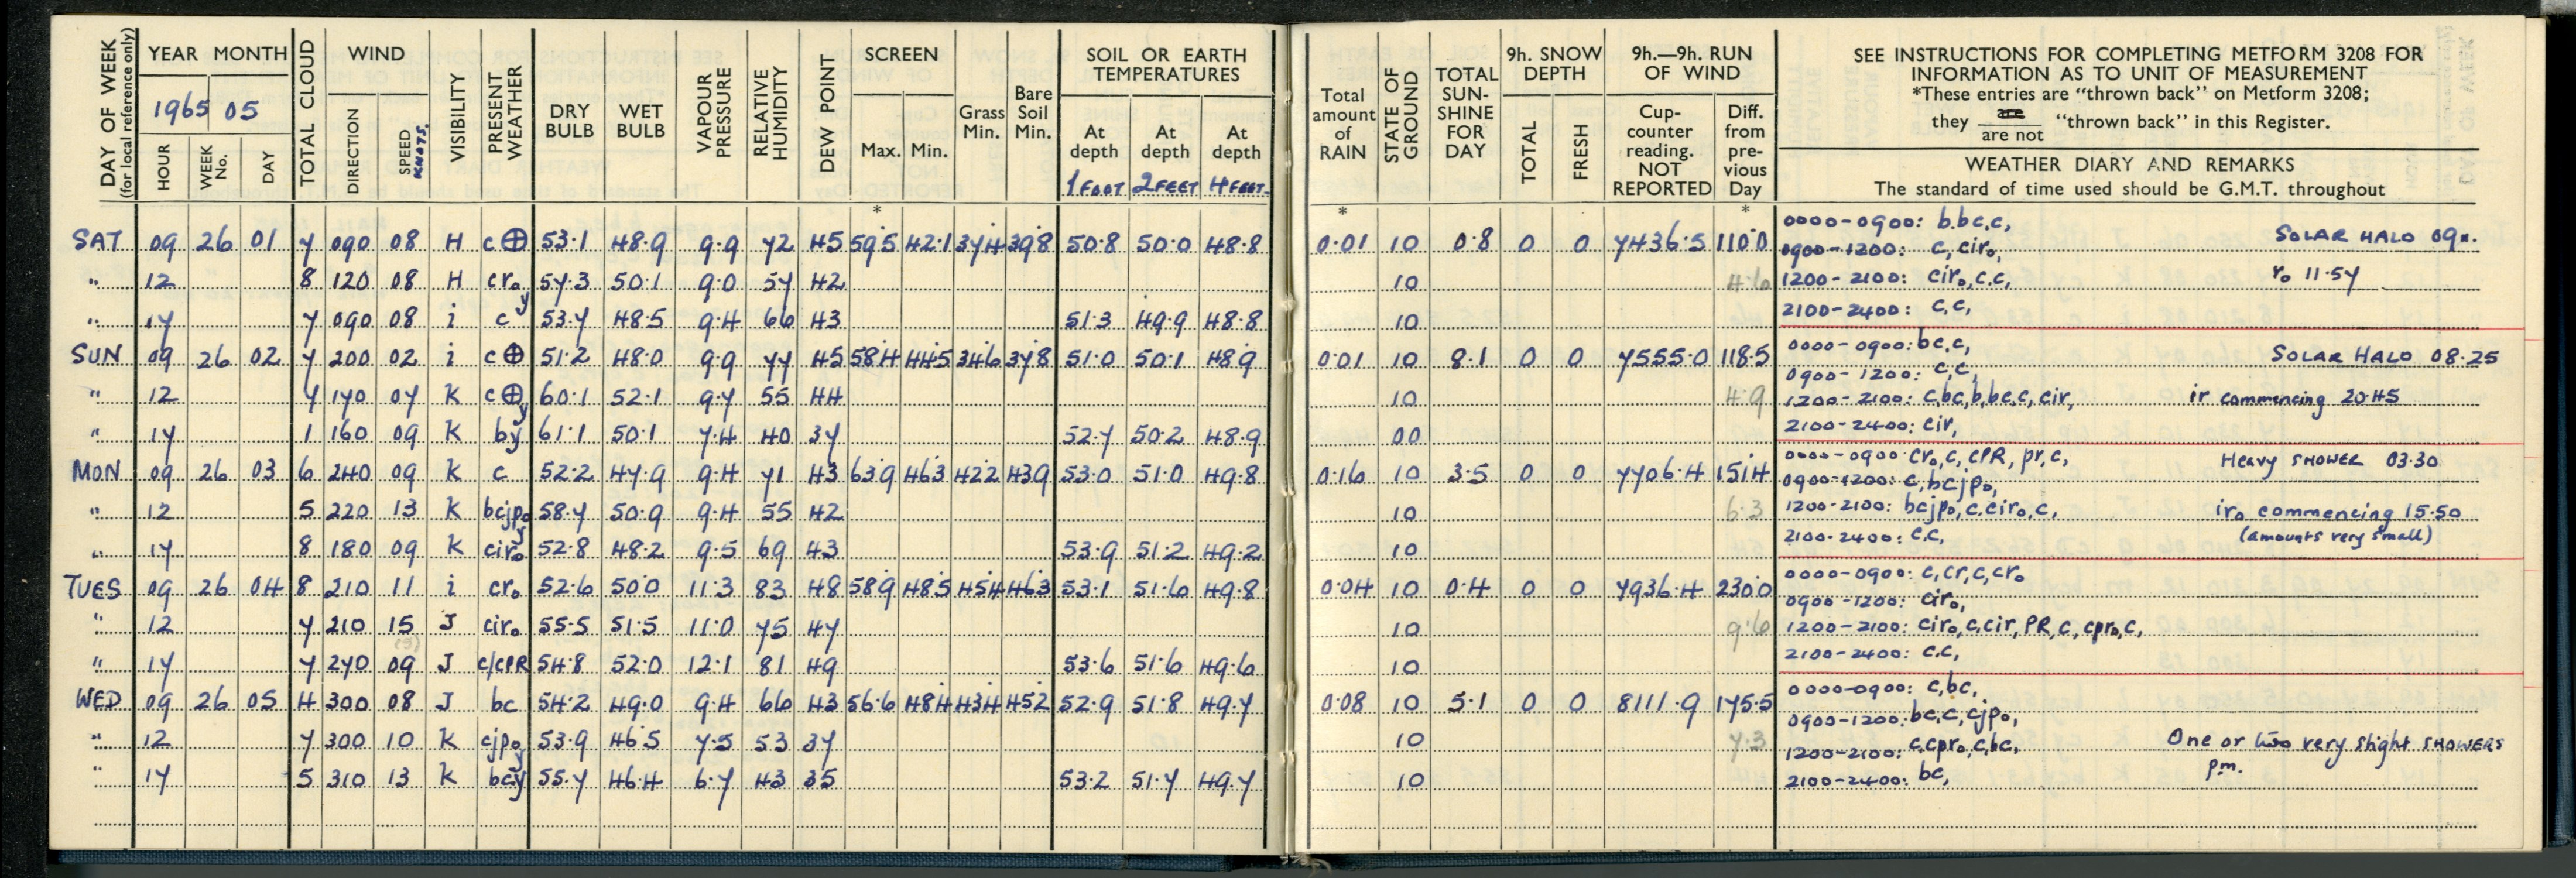 DAY OF WEEK (for local reference only)
YEAR MONTH
1965 05
HOUR
WEEK No.
DAY
TOTAL CLOUD
WIND
DIRECTION
SPEED KNOTS.
VISIBILITY
PRESENT WEATHER
DRY BULB
WET BULB
VAPOUR PRESSURE
RELATIVE HUMIDITY
DEW POINT
SCREEN
Max. Min.
*
Grass Min.
Bare Soil Min.
SOIL OR EARTH TEMPERATURES
At depth 1 FOOT
At depth 2 FEET
At depth 4 FEET
Total amount of RAIN
*
STATE OF GROUND
TOTAL SUN-SHINE FOR DAY
9h. SNOW DEPTH
TOTAL
FRESH
9h.—9h. RUN OF WIND
Cup-counter reading. NOT REPORTED
Diff. from pre-vious Day
*
SEE INSTRUCTIONS FOR COMPLETING METFORM 3208 FOR
INFORMATION AS TO UNIT OF MEASUREMENT
*These entries are "thrown back" on Metform 3208;
they are / are not "thrown back" in this Register.
WEATHER DIARY AND REMARKS
The standard of time used should be G.M.T. throughout
SAT 09 26 01 7 090 08 H c⊕ 53.1 48.9 9.9 72 45 59.5 42.1 37.4 39.8 50.8 50.0 48.8 0.01 10 0.8 0 0 7436.5 110.0
0000-0900: b.bc,c,
0900-1200: c,ciro, SOLAR HALO 09h.
" 12 8 120 08 H cro 57.3 50.1 9.0 57 42 10 4.6
1200-2100: ciro,c.c, ro 11.57
" 17 7 090 08 i cy 53.7 48.5 9.4 66 43 51.3 49.9 48.8 10
2100-2400: c,c,
SUN 09 26 02 7 200 02 i c⊕ 51.2 48.0 9.9 77 45 58.4 44.5 34.6 37.8 51.0 50.1 48.9 0.01 10 8.1 0 0 7555.0 118.5
0000-0900: bc,c, SOLAR HALO 08.25
0900-1200: c,c,
" 12 7 170 07 K c⊕y 60.1 52.1 9.7 55 44 10 4.9
1200-2100: c,bc,b,bc,c,cir, ir commencing 20.45
" 17 1 160 09 K by 61.1 50.1 7.4 40 37 52.7 50.2 48.9 00
2100-2400: cir,
MON 09 26 03 6 240 09 K c 52.2 47.9 9.4 71 43 63.9 46.3 42.2 43.9 53.0 51.0 49.8 0.16 10 3.5 0 0 7706.4 151.4
0000-0900 cro,c,cPR,pr,c, Heavy SHOWER 03.30
0900-1200: c,bcjpo,
" 12 5 220 13 K bcjpo 58.7 50.9 9.4 55 42 10 6.3
1200-2100: bcjpo,c.ciro,c, iro commencing 15.50
" 17 8 180 09 K ciro 52.8 48.2 9.5 69 43 53.9 51.2 49.2 10
2100-2400: c.c, (amounts very small)
TUES 09 26 04 8 210 11 i cro 52.6 50.0 11.3 83 48 58.9 48.5 45.4 46.3 53.1 51.6 49.8 0.04 10 0.4 0 0 7936.4 230.0
0000-0900: c,cr,c,cro
0900-1200: ciro,
" 12 7 210 15 J ciro 55.5 51.5 11.0 75 47 10 9.6
1200-2100: ciro,c,cir,PR,c,cpro,c,
" 17 7 270 09 J c/cPR 54.8 52.0 12.1 81 49 53.6 51.6 49.6 10
2100-2400: c.c,
WED 09 26 05 4 300 08 J bc 54.2 49.0 9.4 66 43 56.6 48.4 43.4 45.2 52.9 51.8 49.7 0.08 10 5.1 0 0 8111.9 175.5
0000-0900: c,bc,
0900-1200: bc,c,cjpo,
" 12 7 300 10 K cjpo 53.9 46.5 7.5 53 37 10 7.3
1200-2100: c,cpro,c,bc, One or two very slight SHOWERS p.m.
" 17 5 310 13 K bcy 55.7 46.4 6.7 43 35 53.2 51.7 49.7 10
2100-2400: bc,